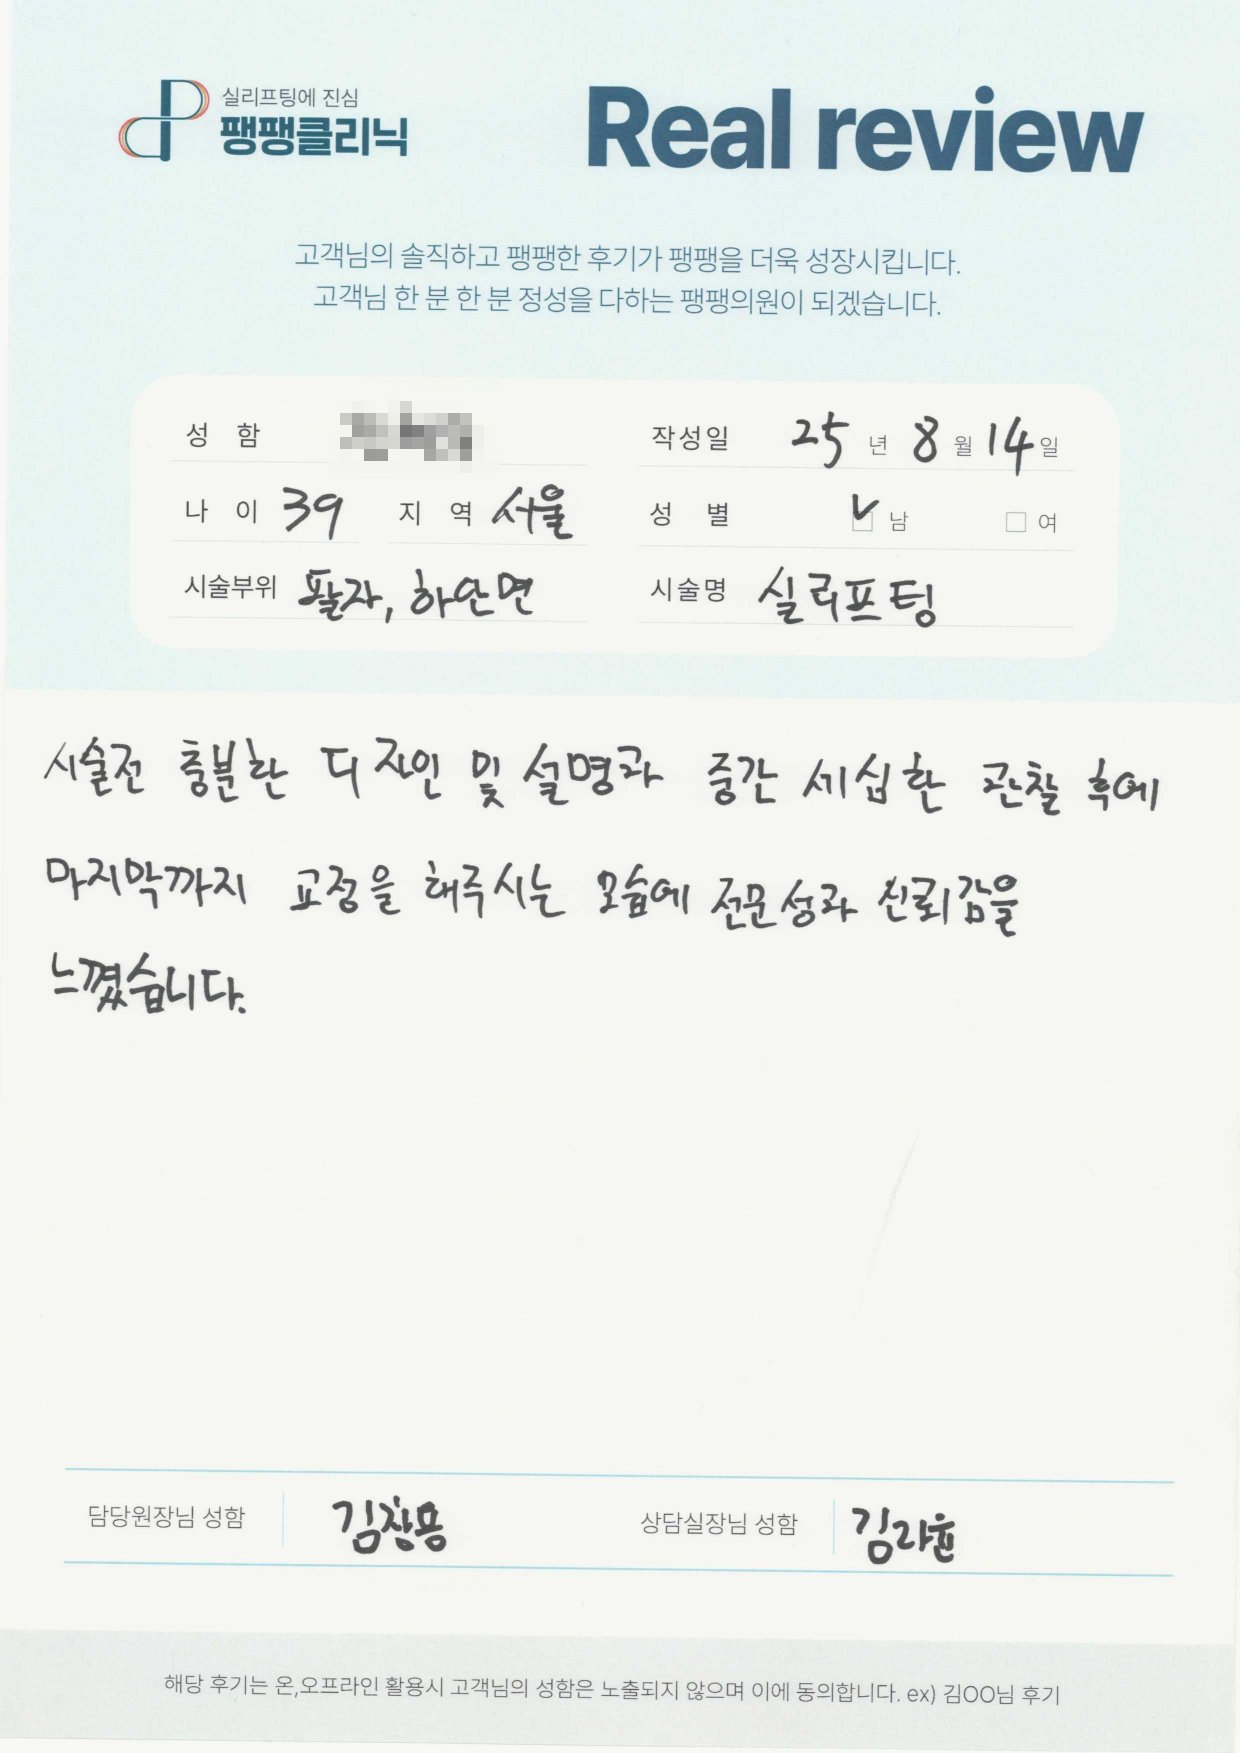 실리프팅에 진심
팽팽클리닉
Real review
고객님의 솔직하고 팽팽한 후기가 팽팽을 더욱 성장시킵니다.
고객님 한 분 한 분 정성을 다하는 팽팽의원이 되겠습니다.
성 함 작성일 25 년 8 월 14 일
나 이 39 지 역 서울 성 별 남 여
시술부위 팔자, 하안면 시술명 실리프팅
시술전 충분한 디자인 및 설명과 중간 세십한 관찰 후에
마지막까지 교정을 해주시는 모습에 전문성과 신뢰감을
느꼈습니다.
담당원장님 성함 김창용 상담실장님 성함 김라윤
해당 후기는 온,오프라인 활용시 고객님의 성함은 노출되지 않으며 이에 동의합니다. ex) 김OO님 후기